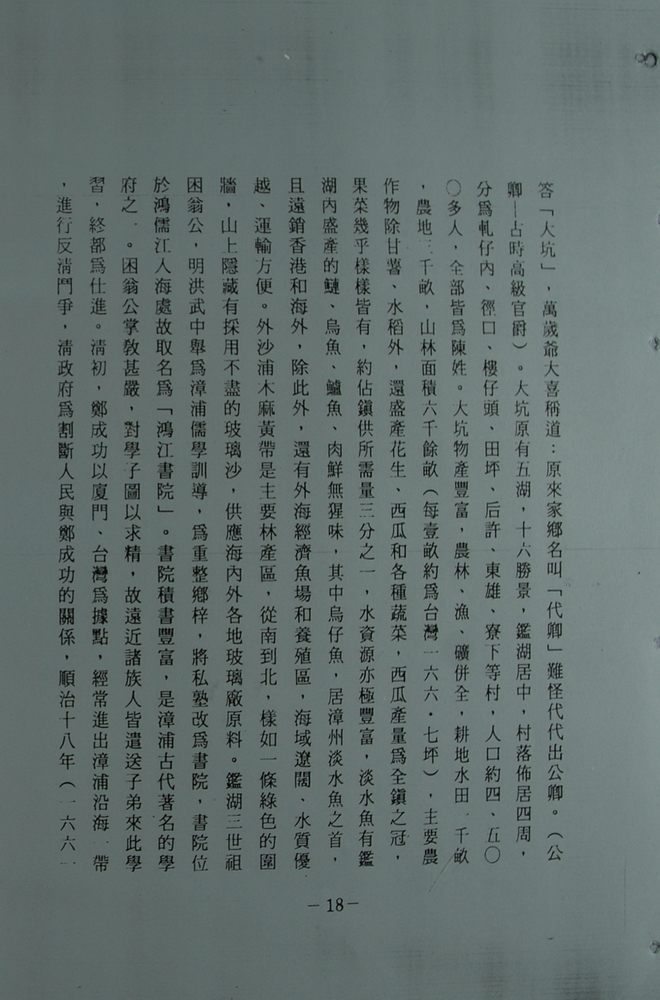 答「大坑」，萬歲爺大喜稱道：原來家鄉名叫「代卿」難怪代代出公卿。（公
卿—古時高級官爵）。大坑原有五湖，十六勝景，鑑湖居中，村落佈居四周，
分爲軋仔內、徑口、樓仔頭、田坪、后許、東雄、寮下等村，人口約四、五〇
〇多人，全部皆爲陳姓。大坑物產豐富，農林、漁、礦併全，耕地水田一千畝
，農地三千畝，山林面積六千餘畝（每壹畝約爲台灣一六六・七坪），主要農
作物除甘薯、水稻外，還盛產花生、西瓜和各種蔬菜，西瓜產量爲全鎭之冠，
果菜幾乎樣樣皆有，約佔鎭供所需量三分之一，水資源亦極豐富，淡水魚有鑑
湖內盛產的鰱、烏魚、鱸魚、肉鮮無猩味，其中烏仔魚，居漳州淡水魚之首，
且遠銷香港和海外，除此外，還有外海經濟魚場和養殖區，海域遼闊、水質優
越、運輸方便。外沙浦木麻黃帶是主要林產區，從南到北，樣如一條綠色的圍
牆，山上隱藏有採用不盡的玻璃沙，供應海內外各地玻璃廠原料。鑑湖三世祖
困翁公，明洪武中舉爲漳浦儒學訓導，爲重整鄉梓，將私塾改爲書院，書院位
於鴻儒江人海處故取名爲「鴻江書院」。書院積書豐富，是漳浦古代著名的學
府之一。困翁公掌敎甚嚴，對學子圖以求精，故遠近諸族人皆遣送子弟來此學
習，終都爲仕進。淸初，鄭成功以廈門、台灣爲據點，經常進出漳浦沿海一帶
，進行反淸鬥爭，淸政府爲割斷人民與鄭成功的關係，順治十八年（一六六一
－18－
8